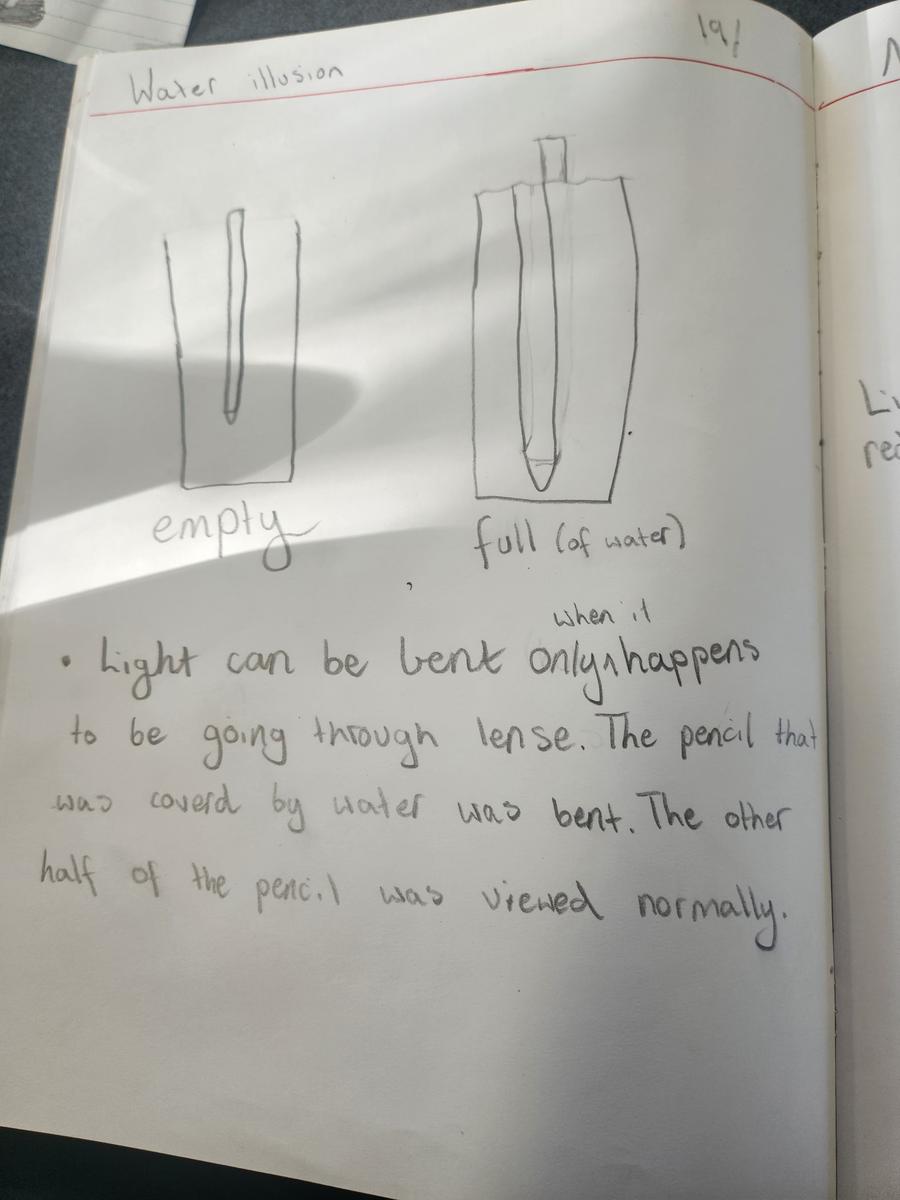 Water illusion
19/
empty
full (of water)
when it
• Light can be bent only^happens
to be going through lense. The pencil that
was coverd by water was bent. The other
half of the pencil was viewed normally.